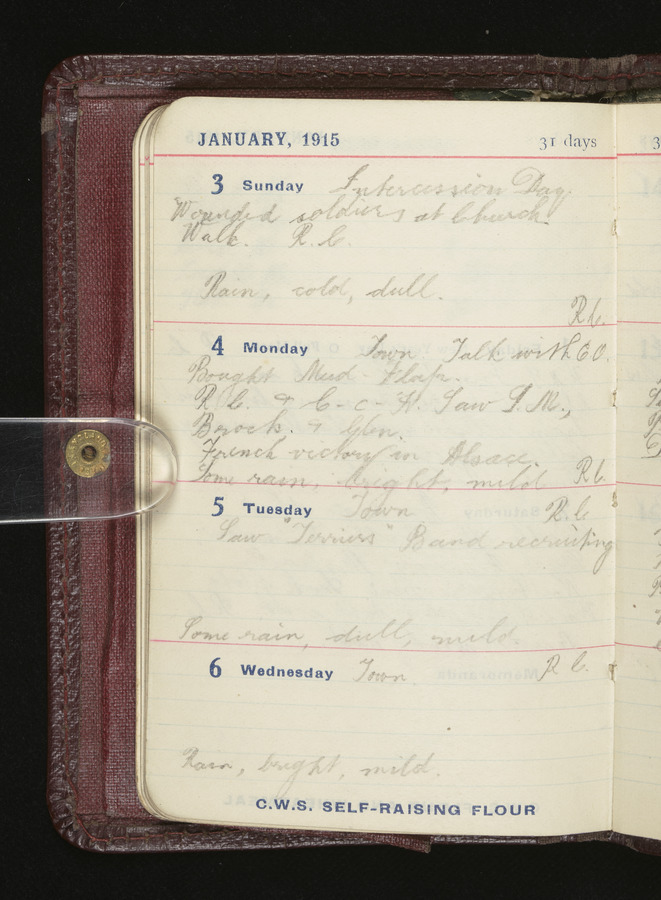 JANUARY, 1915 31 days
3 Sunday Intercession Day.
Wounded soldiers at Church
Walk. R. C.
Rain, cold, dull.
R C.
4 Monday Town. Talk with
Bought Mud-Flap.
R. C. + C-C-H. Saw
+ Glen.
French victory in Alsace.
Some rain, bright, mild R C.
5 Tuesday Town R. C
Saw "Terriers" Band recruiting
Some rain, dull, mild.
6 Wednesday Town R C.
Rain, bright, mild.
C.W.S. SELF-RAISING FLOUR
3